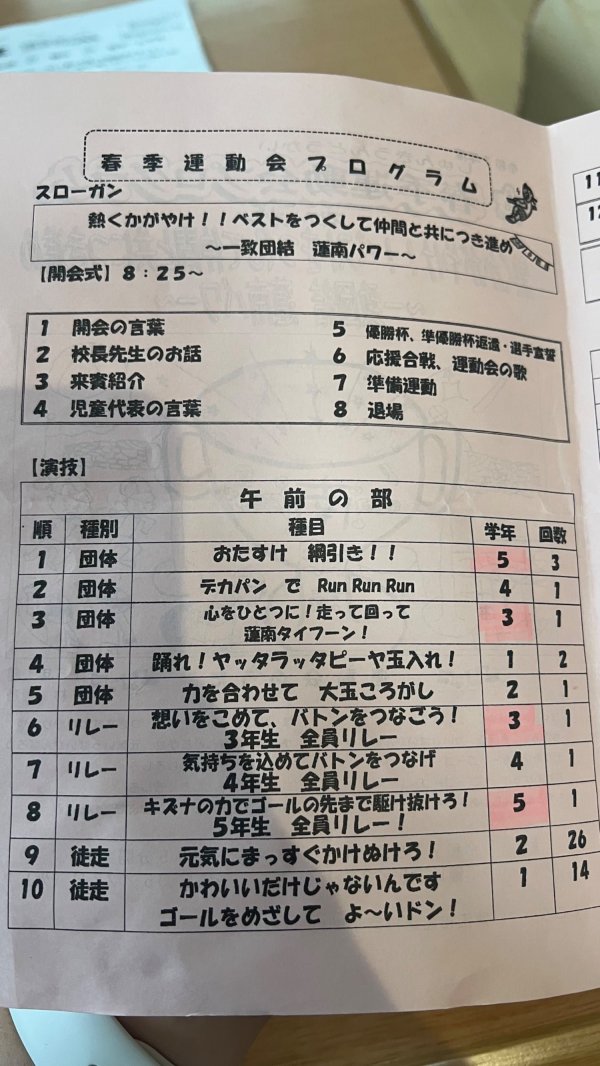 春季運動会プログラム
スローガン
熱くかがやけ！！ベストをつくして仲間と共につき進め
～一致団結　蓮南パワー～
【開会式】８：２５～
1　開会の言葉
2　校長先生のお話
3　来賓紹介
4　児童代表の言葉
5　優勝杯、準優勝杯返還・選手宣誓
6　応援合戦、運動会の歌
7　準備運動
8　退場
【演技】
午前の部
順　種別　種目　学年　回数
1　団体　おたすけ　綱引き！！　5　3
2　団体　デカパン　で　Run Run Run　4　1
3　団体　心をひとつに！走って回って　3　1
蓮南タイフーン！
4　団体　踊れ！ヤッタラッタピーヤ玉入れ！　1　2
5　団体　力を合わせて　大玉ころがし　2　1
6　リレー　想いをこめて、バトンをつなごう！　3　1
３年生　全員リレー
7　リレー　気持ちを込めてバトンをつなげ　4　1
４年生　全員リレー
8　リレー　キズナの力でゴールの先まで駆け抜けろ！　5　1
５年生　全員リレー！
9　徒走　元気にまっすぐかけぬけろ！　2　26
10　徒走　かわいいだけじゃないんです　1　14
ゴールをめざして　よ～いドン！
11